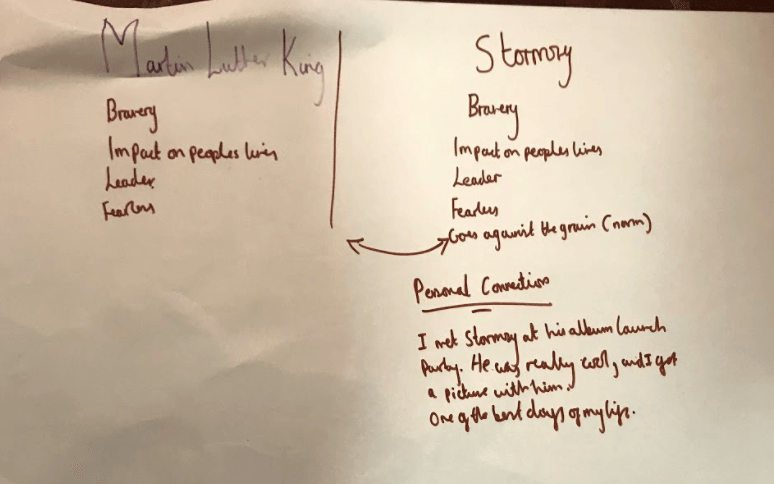 Martin Luther King
Bravery
Impact on peoples lives
Leader.
Fearless
Stormzy
Bravery
Impact on peoples lives
Leader
Fearless
Goes against the grain (norm)
Personal Connections
I met Stormzy at his album launch
Party. He was really cool, and I got
a picture with him.
One of the best days of my life.